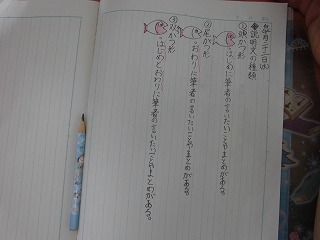 ◆説明文の種類
①頭かつ形
・はじめに筆者の言いたいことやまとめがある。
②尾かつ形
・おわりに筆者の言いたいことやまとめがある。
③双かつ形
・はじめとおわりに筆者の言いたいことやまとめがある。